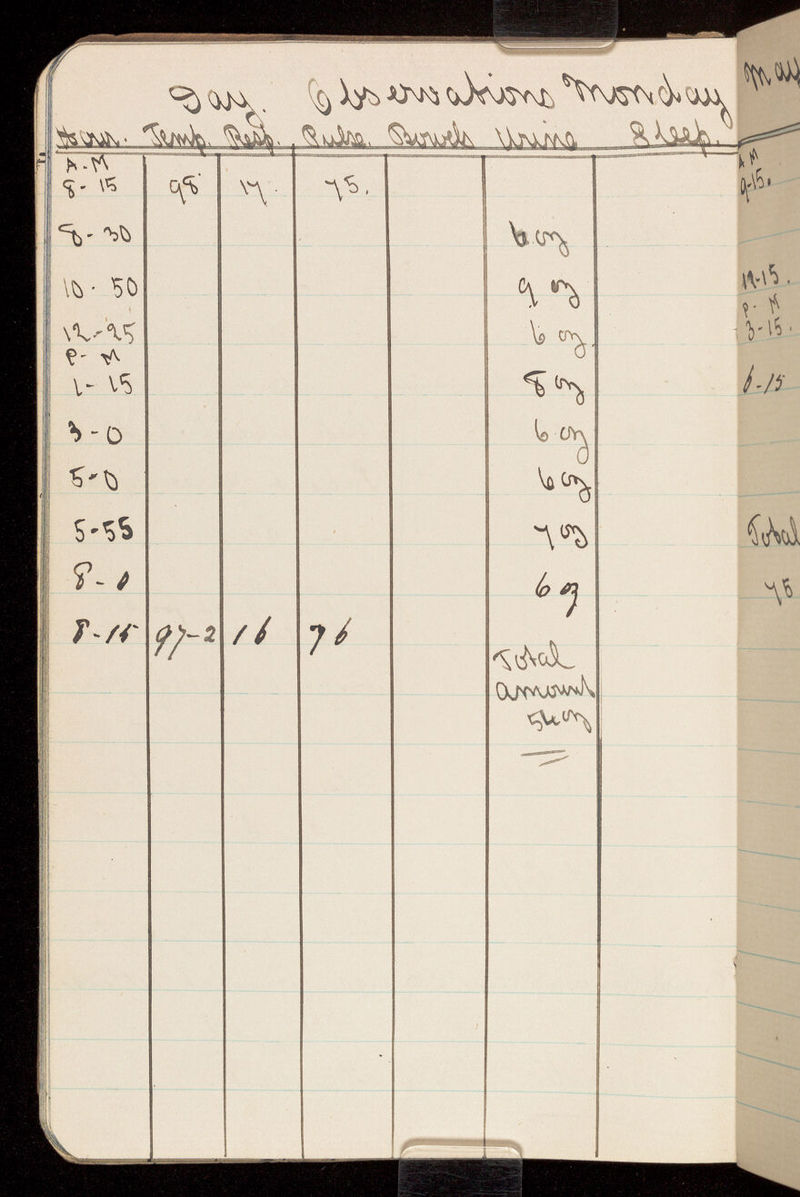 Day. Observations Monday
Hour. Temp. Resp. Pulse. Bowels Urine Sleep.
A.M
8-15 98 17. 75.
8-30 6 oz
10-50 9 oz
12-25 6 oz.
P-M
1-15 8 oz
3-0 6 oz
5-0 6 oz
5-55 7 oz
8-0 6 oz
8-15 97-2 16 76
Total
amount
54 oz
May
A M
9-15.
12-15.
P-M
3-15.
6-15
Total
75